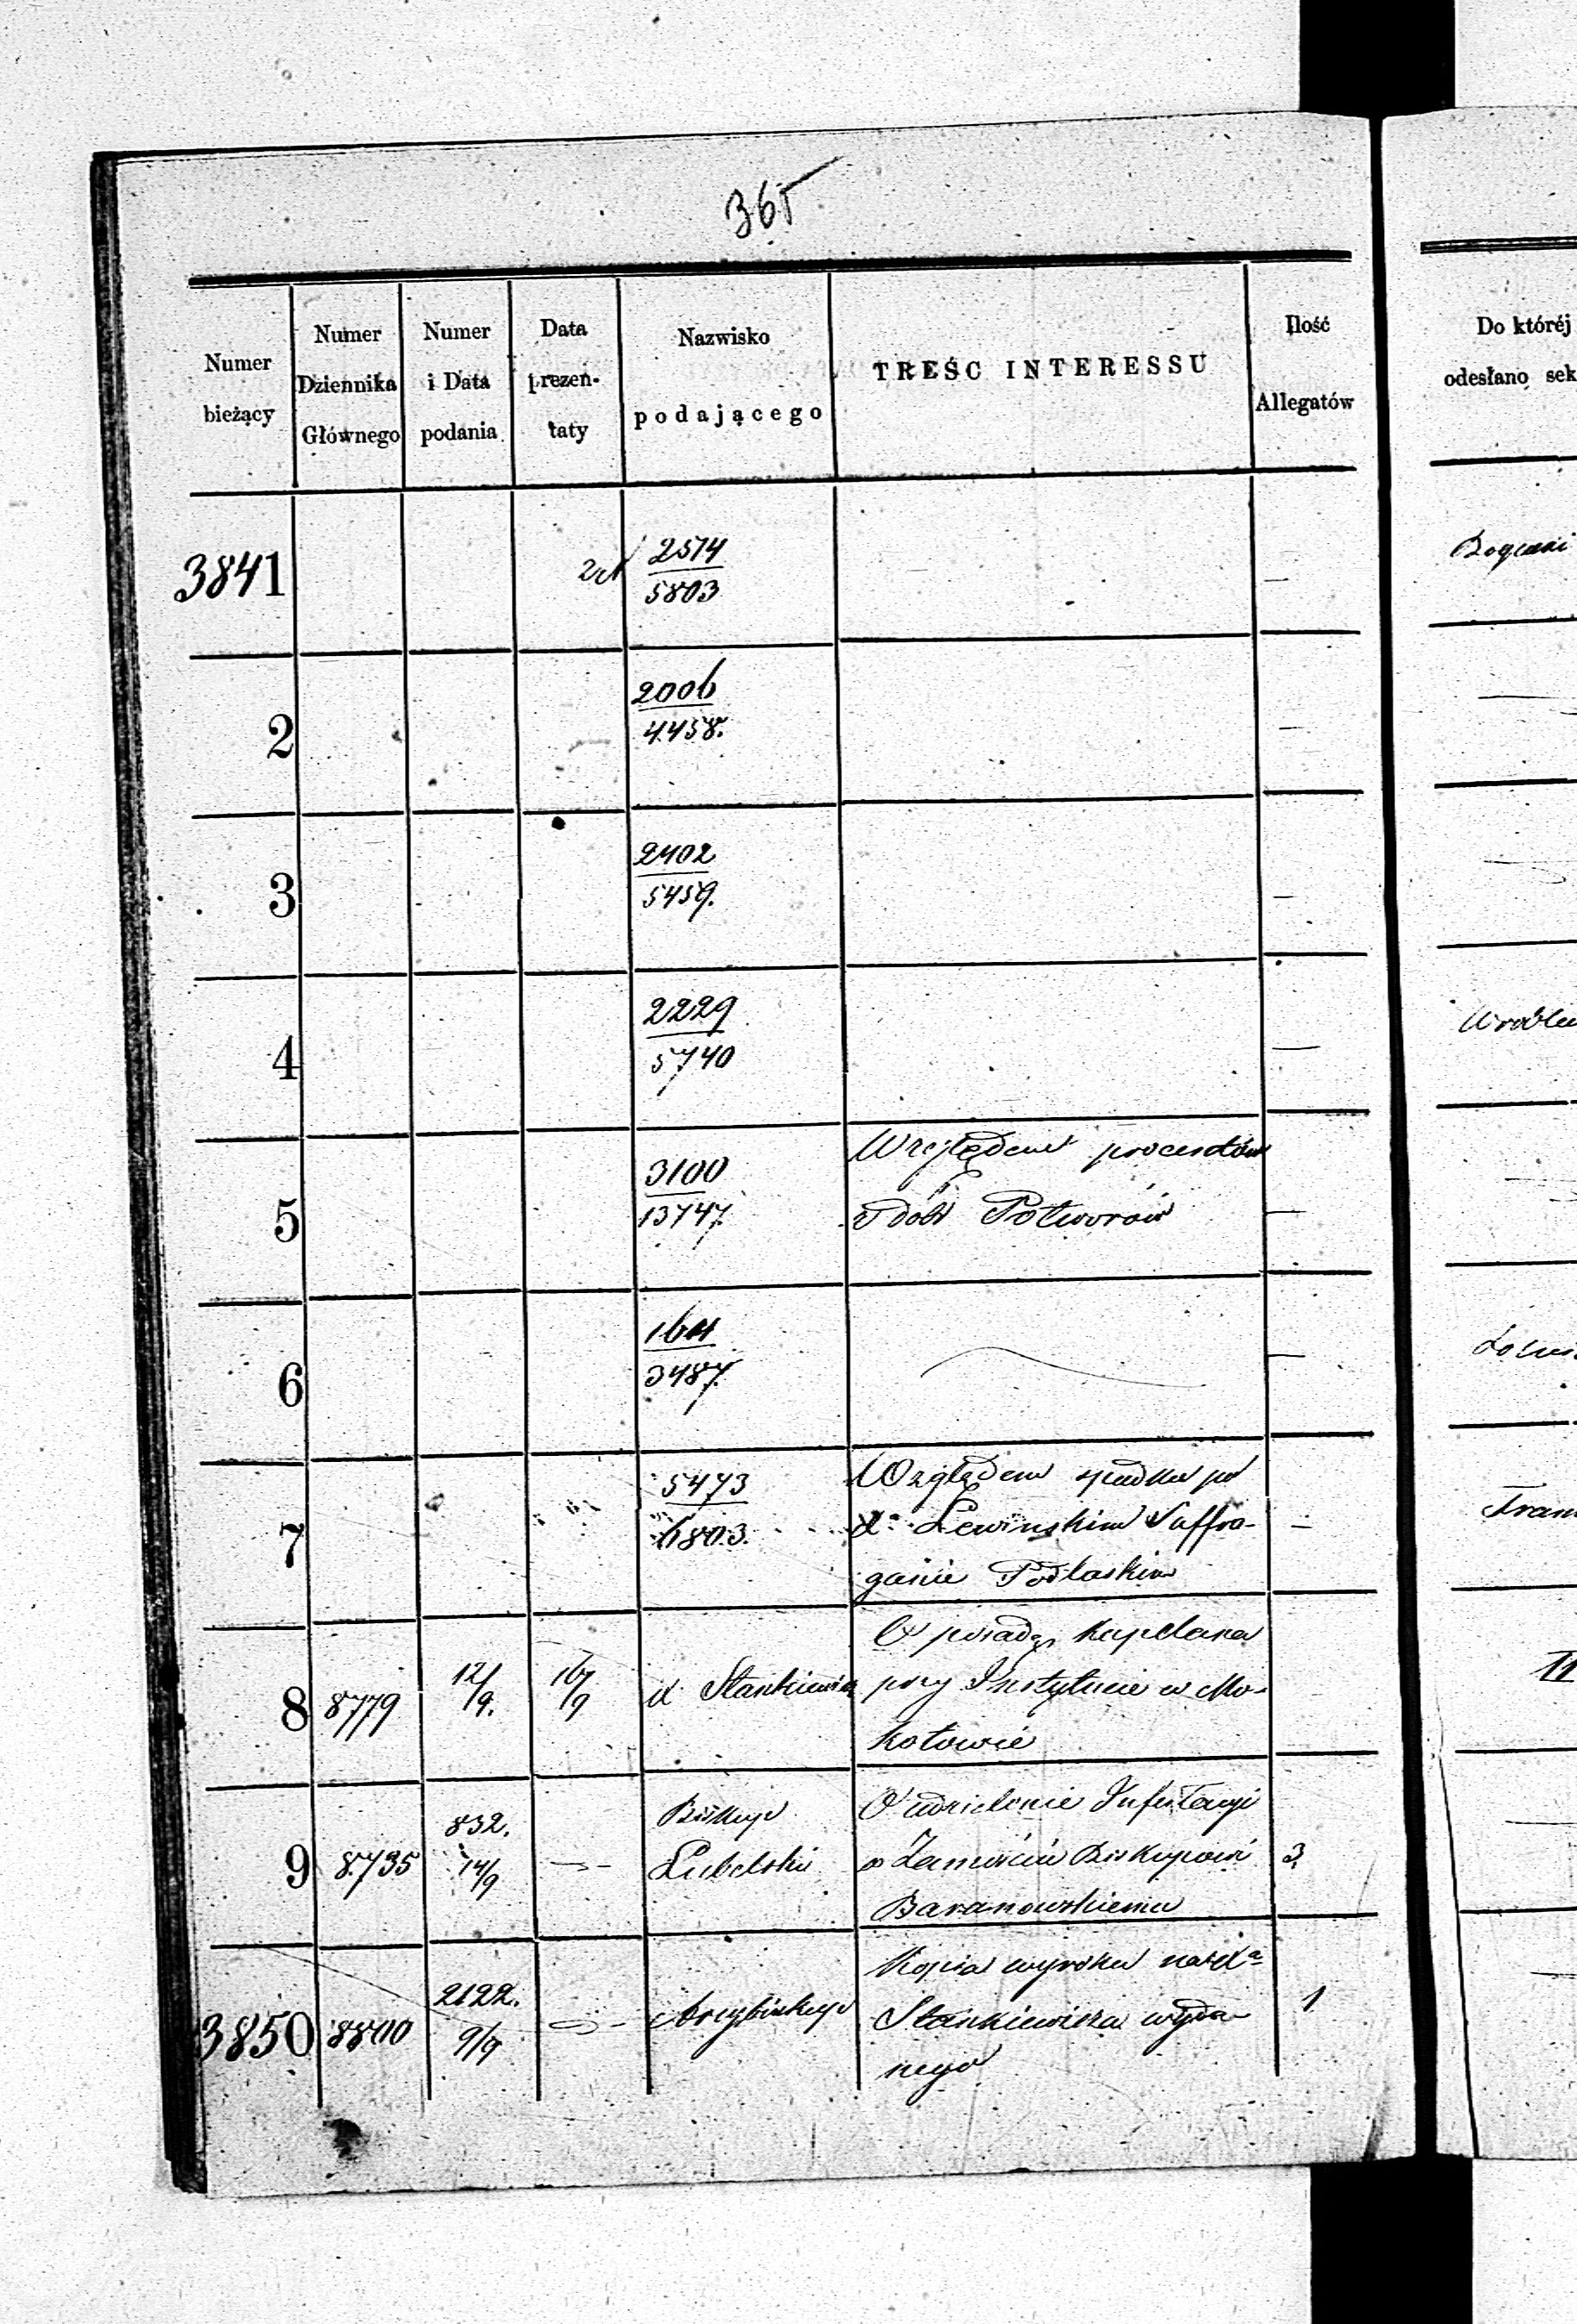 365
Numer bieżący
Numer Dziennika Głównego
Numer i Data podania
Data prezentaty
Nazwisko podającego
TREŚC INTERESSU
Ilość Allegatów
Do któréj
odesłano sek
3841
2574
5803
—
2
2006
4458.
—
3
2402
5459.
—
4
2229
5740
—
5
3100
13747.
Względem procentów
z dóbr Potworów
—
6
3487.
—
7
5473
6803.
Względem spadku po
X. Lewińskim Suffra-
ganie Podlaskim
—
8
8779
12/9.
16/9
X Stankiewicz
O posadę kapelana
przy Instytucie w Mo-
kotowie
II
9
8735
832.
14/9
Biskup
Lubelski
O udzielenie Infułacyi
w Zamościu Biskupowi
Baranowskiemu
3.
3850
8800
2122.
9/9
Arcybiskup
Kopia wyroku na Xa
Stankiewicza wyda-
nego
1